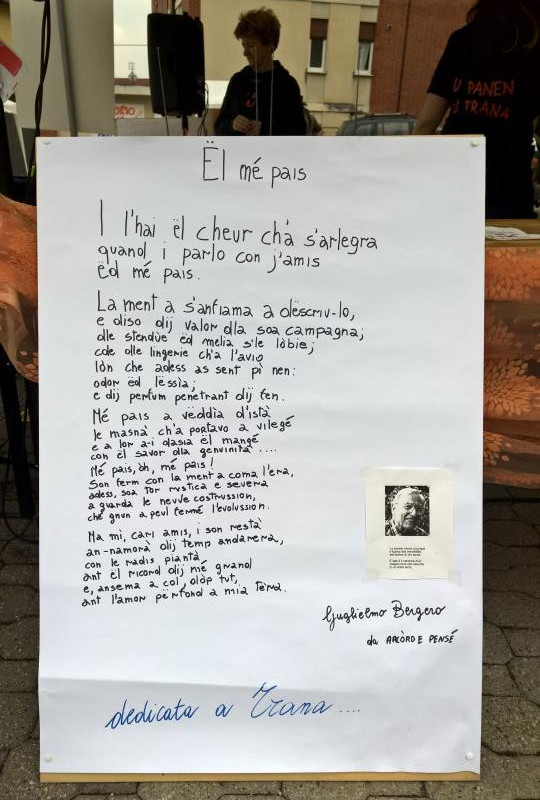 U PANEN
TRANA
Ël mé pais
I l'hai ël cheur ch'a s'arlegra
quand i parlo con j'amis
ëd mé pais.
La ment a s'anfiama a dëscriv-lo,
e diso dij valor dla soa campagna;
dle stendùe ëd melia s'le lòbie;
cde dle lingerie ch'a l'avìo
lòn che adess as sent pì nen:
odor ëd lëssìa;
e dij perfum penetrant dij fen.
Mé pais a vëddìa d'istà
le masnà ch'a portavo a vilegé
e a lor a-i dasìa ël mangé
con ël savor dla genuinità ....
Mé pais, òh, mé pais!
Son ferm con la ment a coma l'era,
adess, soa tor rustica e severa
a guarda le neuve costrussion,
ché gnun a peul fermé l'evolussion.
Ma mi, cari amis, i son restà
an-namorà dij temp andarera,
con le radis piantà
ant ël ricord dij mé grand
e, ansema a col, dòp tut,
ant l'amor përfond a mia tèra.
Guglielmo Bergero
da ARCÒRD E PENSÉ
dedicata a Trana ....